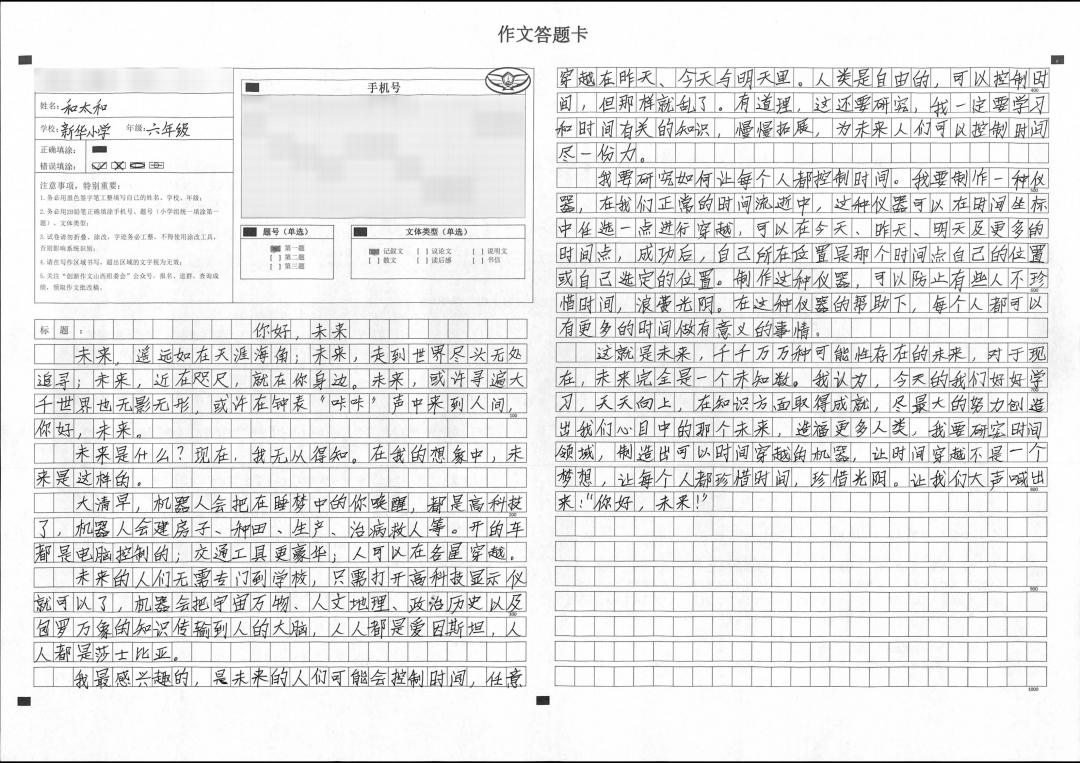 作文答题卡
姓名：和太和
学校：新华小学 年级：六年级
正确填涂：
错误填涂：
注意事项，特别重要：
1.务必用黑色签字笔工整填写自己的姓名、学校、年级；
2.务必用2B铅笔正确填涂手机号、题号（小学组统一填涂第一
题）、文体类型；
3.试卷请勿折叠、涂改，字迹务必工整，不得使用涂改工具，
否则影响系统识别；
4.请在写作区域书写，超出区域的文字视为无效；
5.关注“创新作文山西组委会”公众号，报名、进群、查询成
绩，领取作文批改稿。
手机号
题号（单选）
第一题
[ ] 第二题
[ ] 第三题
文体类型（单选）
记叙文 [ ] 议论文 [ ] 说明文
[ ] 散文 [ ] 读后感 [ ] 书信
标题： 你好，未来
未来，遥远如在天涯海角；未来，走到世界尽头无处
追寻；未来，近在咫尺，就在你身边。未来，或许寻遍大
千世界也无影无形，或许在钟表“咔咔”声中来到人间，
100
你好，未来。
未来是什么？现在，我无从得知。在我的想象中，未
来是这样的。
大清早，机器人会把在睡梦中的你唤醒，都是高科技
200
了，机器人会建房子、种田、生产、治病救人等。开的车
都是电脑控制的；交通工具更豪华；人可以在各星穿越。
未来的人们无需专门到学校，只需打开高科技显示仪
就可以了，机器会把宇宙万物、人文地理、政治历史以及
300
包罗万象的知识传输到人的大脑，人人都是爱因斯坦，人
人都是莎士比亚。
我最感兴趣的，是未来的人们可能会控制时间，任意
穿越在昨天、今天与明天里。人类是自由的，可以控制时
400
间，但那样就乱了。有道理，这还要研究，我一定要学习
和时间有关的知识，慢慢拓展，为未来人们可以控制时间
尽一份力。
我要研究如何让每个人都控制时间。我要制作一种仪
器，在我们正常的时间流逝中，这种仪器可以在时间坐标
中任选一点进行穿越，可以在今天、昨天、明天及更多的
时间点，成功后，自己所在位置是那个时间点自己的位置
或自己选定的位置。制作这种仪器，可以防止有些人不珍
600
惜时间，浪费光阴。在这种仪器的帮助下，每个人都可以
有更多的时间做有意义的事情。
这就是未来，千千万万种可能性存在的未来，对于现
在，未来完全是一个未知数。我认为，今天的我们好好学
700
习，天天向上，在知识方面取得成就，尽最大的努力创造
出我们心目中的那个未来，造福更多人类，我要研究时间
领域，制造出可以时间穿越的机器，让时间穿越不是一个
梦想，让每个人都珍惜时间，珍惜光阴。让我们大声喊出
800
来：“你好，未来！”
900
1000